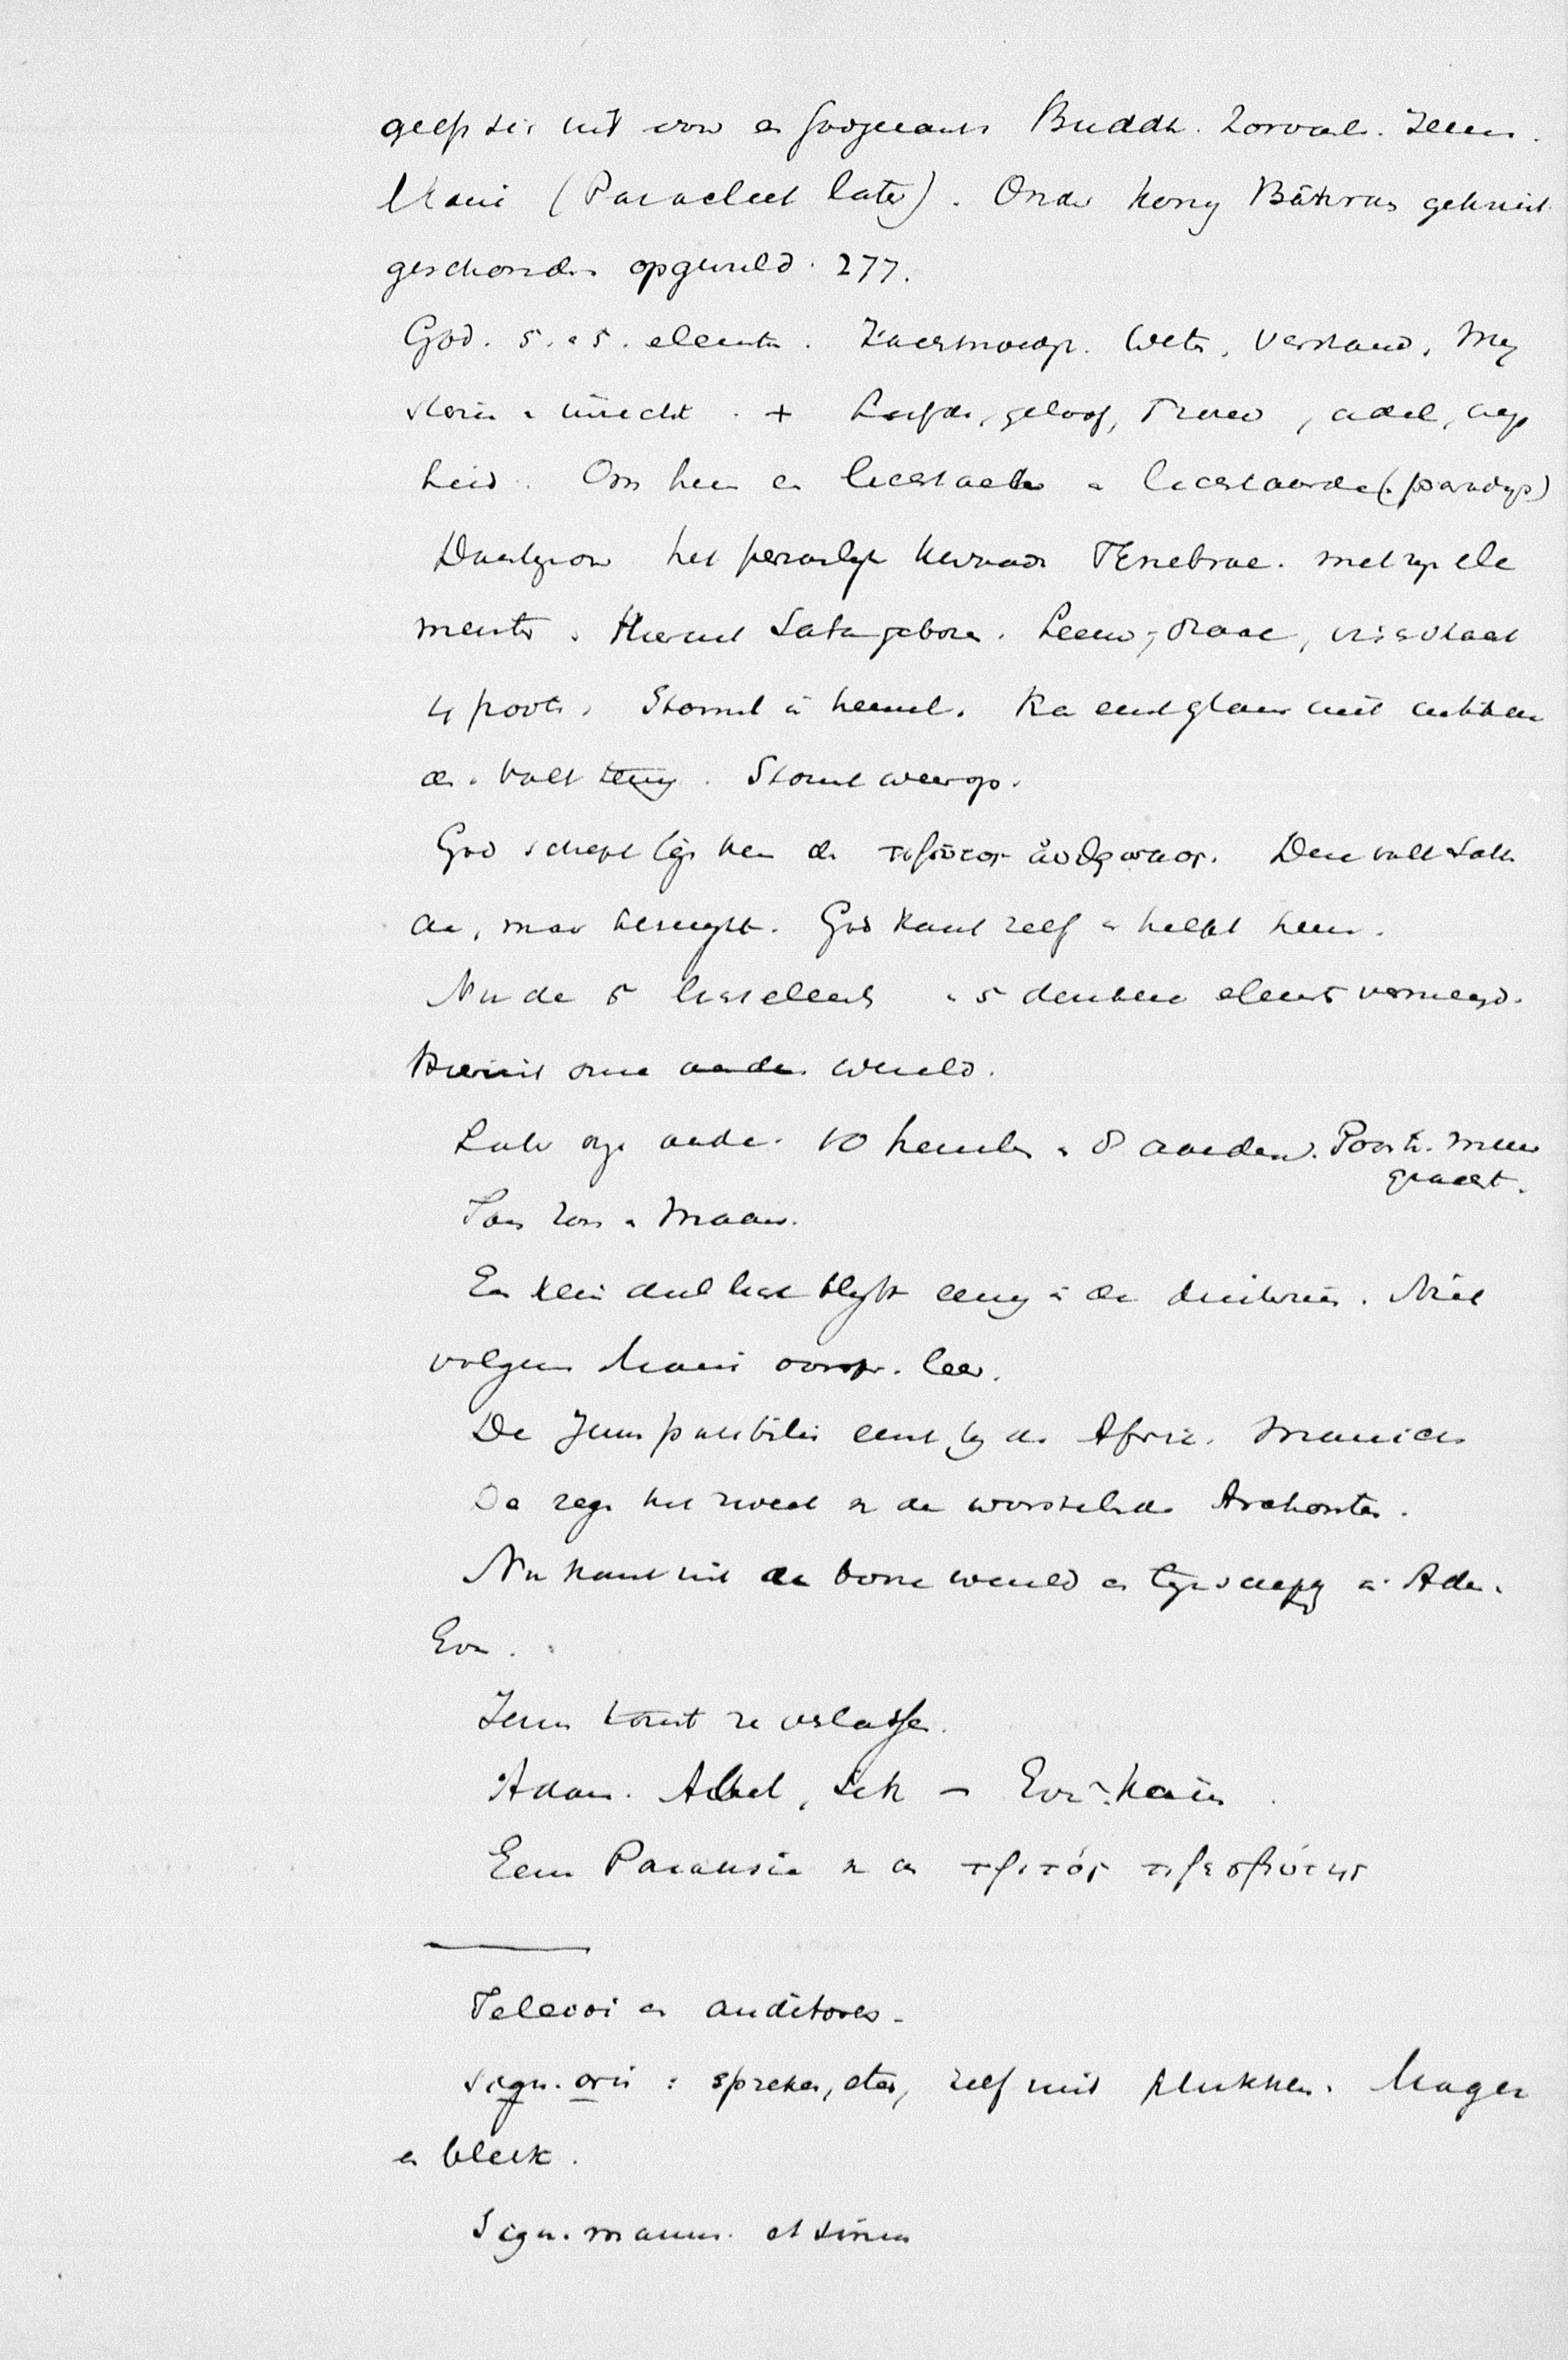 geeft zich uit voor een godgezant. Buddh. Zoroast. Jezus.
Mani (Paracleet later). Onder koning Bahram gekruist
geschonden opgevuld. 277.
God. 5 en 5 elementen. Zachtmoedigh. Weten, Verstand, Mys
terie en inzicht. + Liefde, geloof, Trouw, adel, wijs
heid. Om hem en lichtaether en lichtaarde (paradijs)
Daartegenover het persoonlijk kwaad Tenebrae. met zijn ele
menten. Hieruit Satan geboren. Leeuw, draak, vissstaart
4 pooten. Stormt in hemel. Ka
en valt terug. Stormt weer op.
God schept tegen hem den πρῶτος ἄνθρωπος. Deze valt Satan
aan, maar bezwijkt. God komt zelf en helpt hem.
Nu de 5 lichtelementen en 5 donkere elementen vermengd.
Hieruit onze wereld.
Later nog andere. 10 hemelen en 8 aarden. Poorten. Muur
gracht.
Dan zon en maan.
Een klein deel licht blijft eeuwig in de duisternis. Niet
volgens Mani oorspr. leer.
De Jezus patibilis eerst bij de Afric. Manich.
De regen het zweet van de worstelende Archonten.
Nu komt uit de booze wereld een tegenschepping in Adam en
Eva.
Jezus komt ze verlossen.
Adam. Abel, Seth – Eva Kain.
Een Parousia van den τριτός πρεσβύτης
Teleioi en auditores.
Sign. oris: spreken, eten, zelf niet plukken. Mager
en bleek.
Sign. manus. et sinus